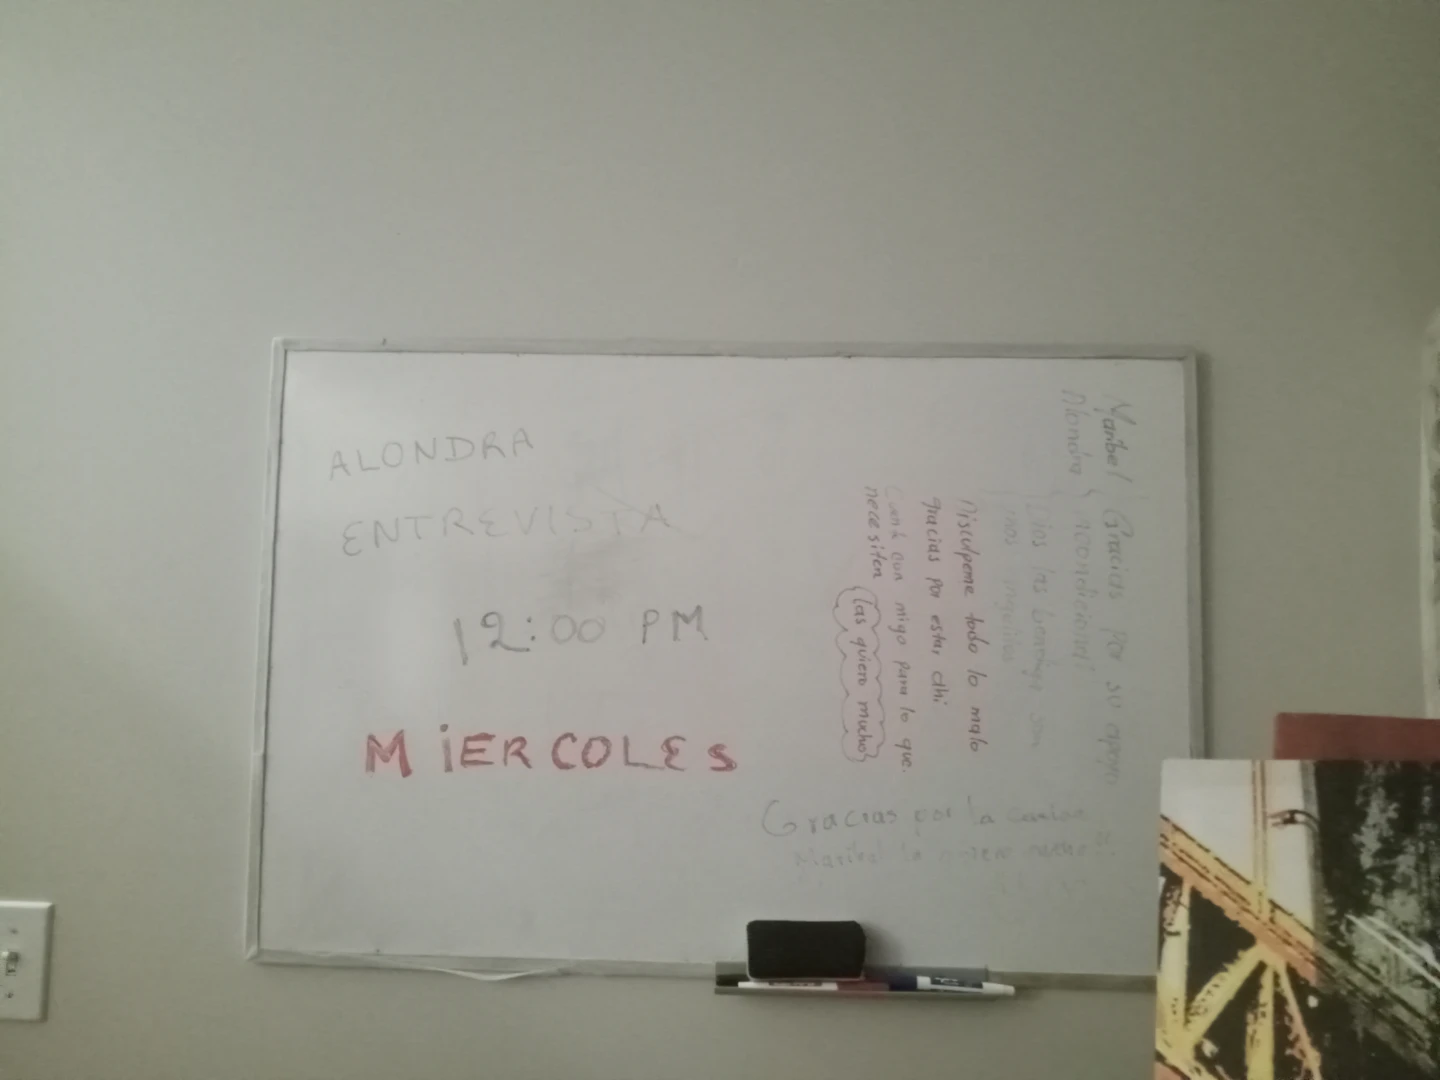 ALONDRA
ENTREVISTA
12:00 PM
MiERCOLES
Maribel Gracias por su apoyo
Alondra incondicional!
Dios las bendiga son
Disculpeme todo lo malo
gracias por estar ahi
Cuent con migo para lo que.
necesiten las quiero mucho
Gracias por la
Maribel la quiero mucho!!.